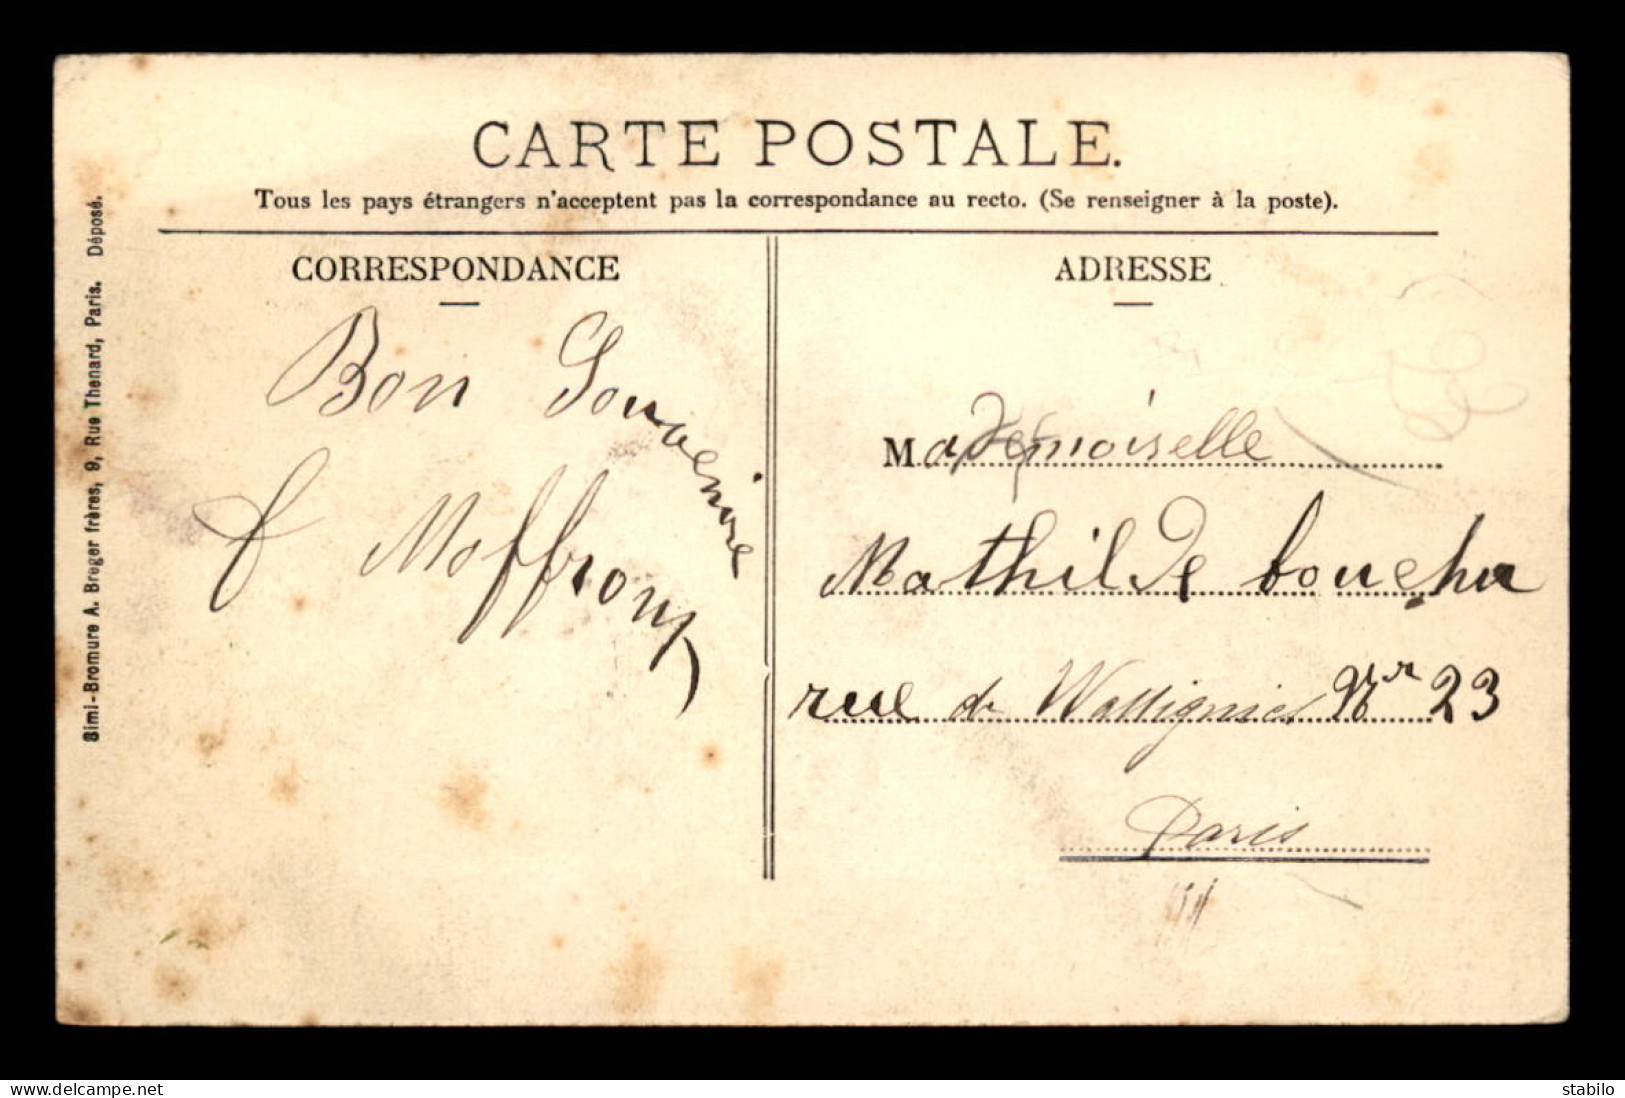 CARTE POSTALE.
Tous les pays étrangers n'acceptent pas la correspondance au recto. (Se renseigner à la poste).
Simi-Bromure A. Breger frères, 9, Rue Thenard, Paris. Déposé.
CORRESPONDANCE
Bon Souvenire
Moffrony
ADRESSE
Mademoiselle
Mathilde boucher
rue de Wattignies Nr 23
Paris
www.delcampe.net
stabilo